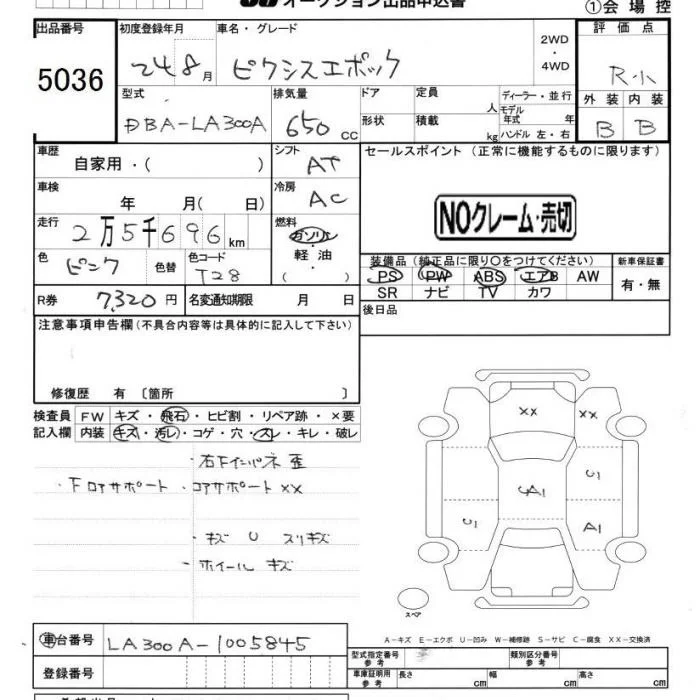 オークション出品申込書
①会場控
出品番号 初度登録年月 車名・グレード 2WD・4WD 評価点
5036 24 8月 ピクシスエポック R小
型式 排気量 ドア 定員 人 ディーラー・並行 外装 内装
DBA-LA300A 650cc 形状 積載 kg モデル年式 年 ハンドル 左・右 B B
車歴 自家用・( ) シフト AT セールスポイント(正常に機能するものに限ります)
車検 年 月( 日) 冷房 AC
NOクレーム・売切
走行 2万5千696km 燃料 ガソリン・軽油・( )
色 ピンク 色替 色コード T28
装備品(純正品に限り〇をつけてください) 新車保証書
PS PW ABS エアB AW 有・無
SR ナビ TV カワ
R券 7,320円 名変通知期限 月 日 後日品
注意事項申告欄(不具合内容等は具体的に記入して下さい)
修復歴 有〔箇所 〕
検査員 FW キズ・飛石・ヒビ割・リペア跡・×要
記入欄 内装 キズ・汚レ・コゲ・穴・スレ・キレ・破レ
・右Fインパネ歪
・Fロアサポート ・コアサポート××
・キズ U スリキズ
・ホイールキズ
XX XX
U1
UA1
U1 A1
スペア
A-キズ E-エクボ U-凹み W-補修跡 S-サビ C-腐食 XX-交換済
車台番号 LA300A-1005845
型式指定番号 参考 類別区分番号 参考
登録番号 車庫証明用 参考 長さ cm 幅 cm 高さ cm